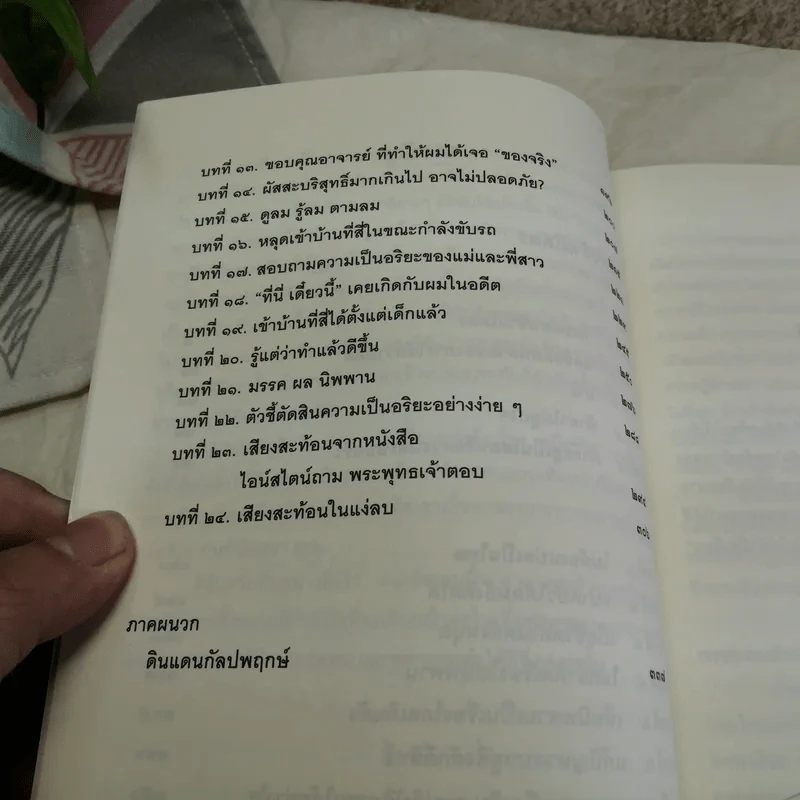 บทที่ ๑๓. ขอบคุณอาจารย์ ที่ทำให้ผมได้เจอ “ของจริง”
บทที่ ๑๔. ผัสสะบริสุทธิ์มากเกินไป อาจไม่ปลอดภัย?
บทที่ ๑๕. ดูลม รู้ลม ตามลม
บทที่ ๑๖. หลุดเข้าบ้านที่สี่ในขณะกำลังขับรถ
บทที่ ๑๗. สอบถามความเป็นอริยะของแม่และพี่สาว
บทที่ ๑๘. “ที่นี่ เดี๋ยวนี้” เคยเกิดกับผมในอดีต
บทที่ ๑๙. เข้าบ้านที่สี่ได้ตั้งแต่เด็กแล้ว
บทที่ ๒๐. รู้แต่ว่าทำแล้วดีขึ้น
บทที่ ๒๑. มรรค ผล นิพพาน
บทที่ ๒๒. ตัวชี้ตัดสินความเป็นอริยะอย่างง่าย ๆ
บทที่ ๒๓. เสียงสะท้อนจากหนังสือ
ไอน์สไตน์ถาม พระพุทธเจ้าตอบ
บทที่ ๒๔. เสียงสะท้อนในแง่ลบ
ภาคผนวก
ดินแดนกัลปพฤกษ์